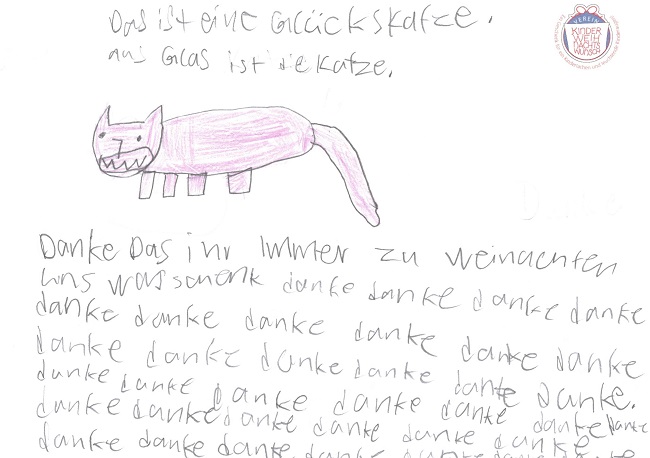 Das ist eine Glückskatze.
aus Glas ist die Katze.
VEREIN
KINDER
WEIH
NACHTS
WUNSCH
Danke Das ihr Immer zu Weinachten
uns was schenk danke danke danke danke
danke danke danke danke danke danke
danke danke danke danke danke danke
danke danke danke danke danke danke.
danke danke danke danke danke danke danke
danke danke danke danke danke danke